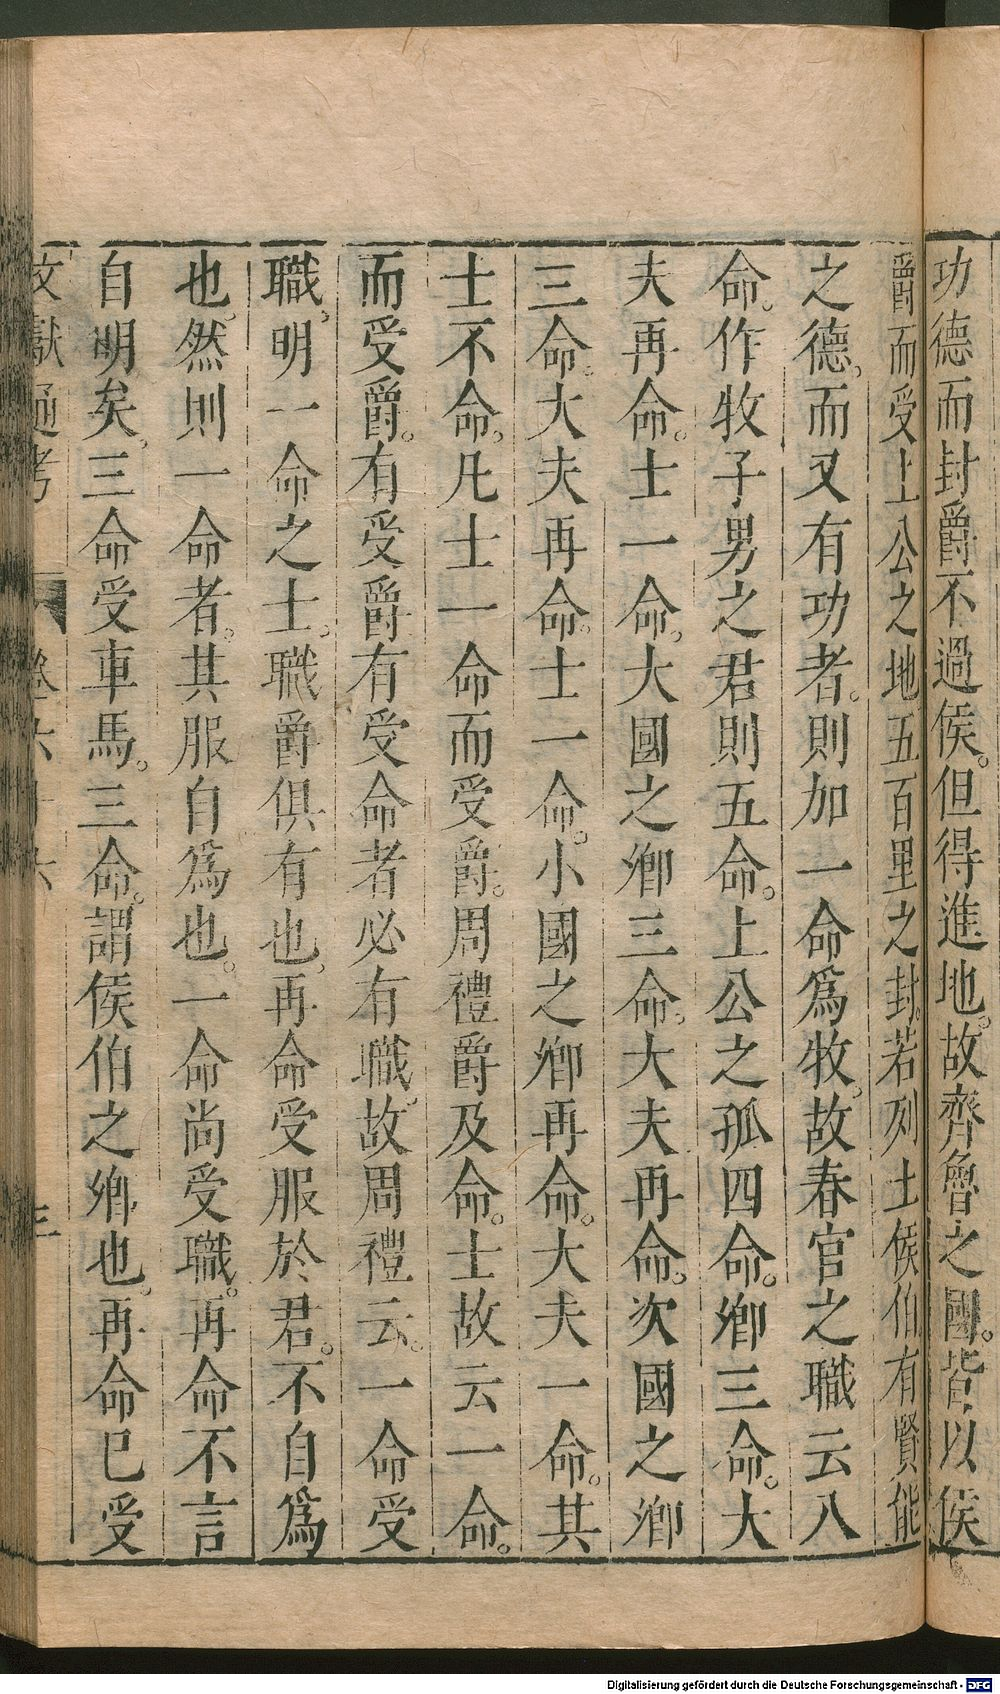 功德而封爵不過侯。但得進地。故齊魯之國。皆以侯
爵而受上公之地五百里之封。若列土侯伯有賢能
之德。而又有功者。則加一命爲牧。故春官之職云八
命。作牧子男之君則五命。上公之孤四命。卿三命。大
夫再命。士一命。大國之卿三命。大夫再命。次國之卿
三命。大夫再命。士一命。小國之卿再命。大夫一命。其
士不命。凡士一命而受爵。周禮爵及命。士故云一命。
而受爵。有受爵有受命者必有職。故周禮云。一命受
職。明一命之士。職爵俱有也。再命受服於君。不自爲
也。然則一命者。其服自爲也。一命尚受職。再命不言
自明矣。三命受車馬。三命。謂侯伯之卿也。再命已受
文獻通考 卷六十六 三
Digitalisierung gefördert durch die Deutsche Forschungsgemeinschaft - DFG